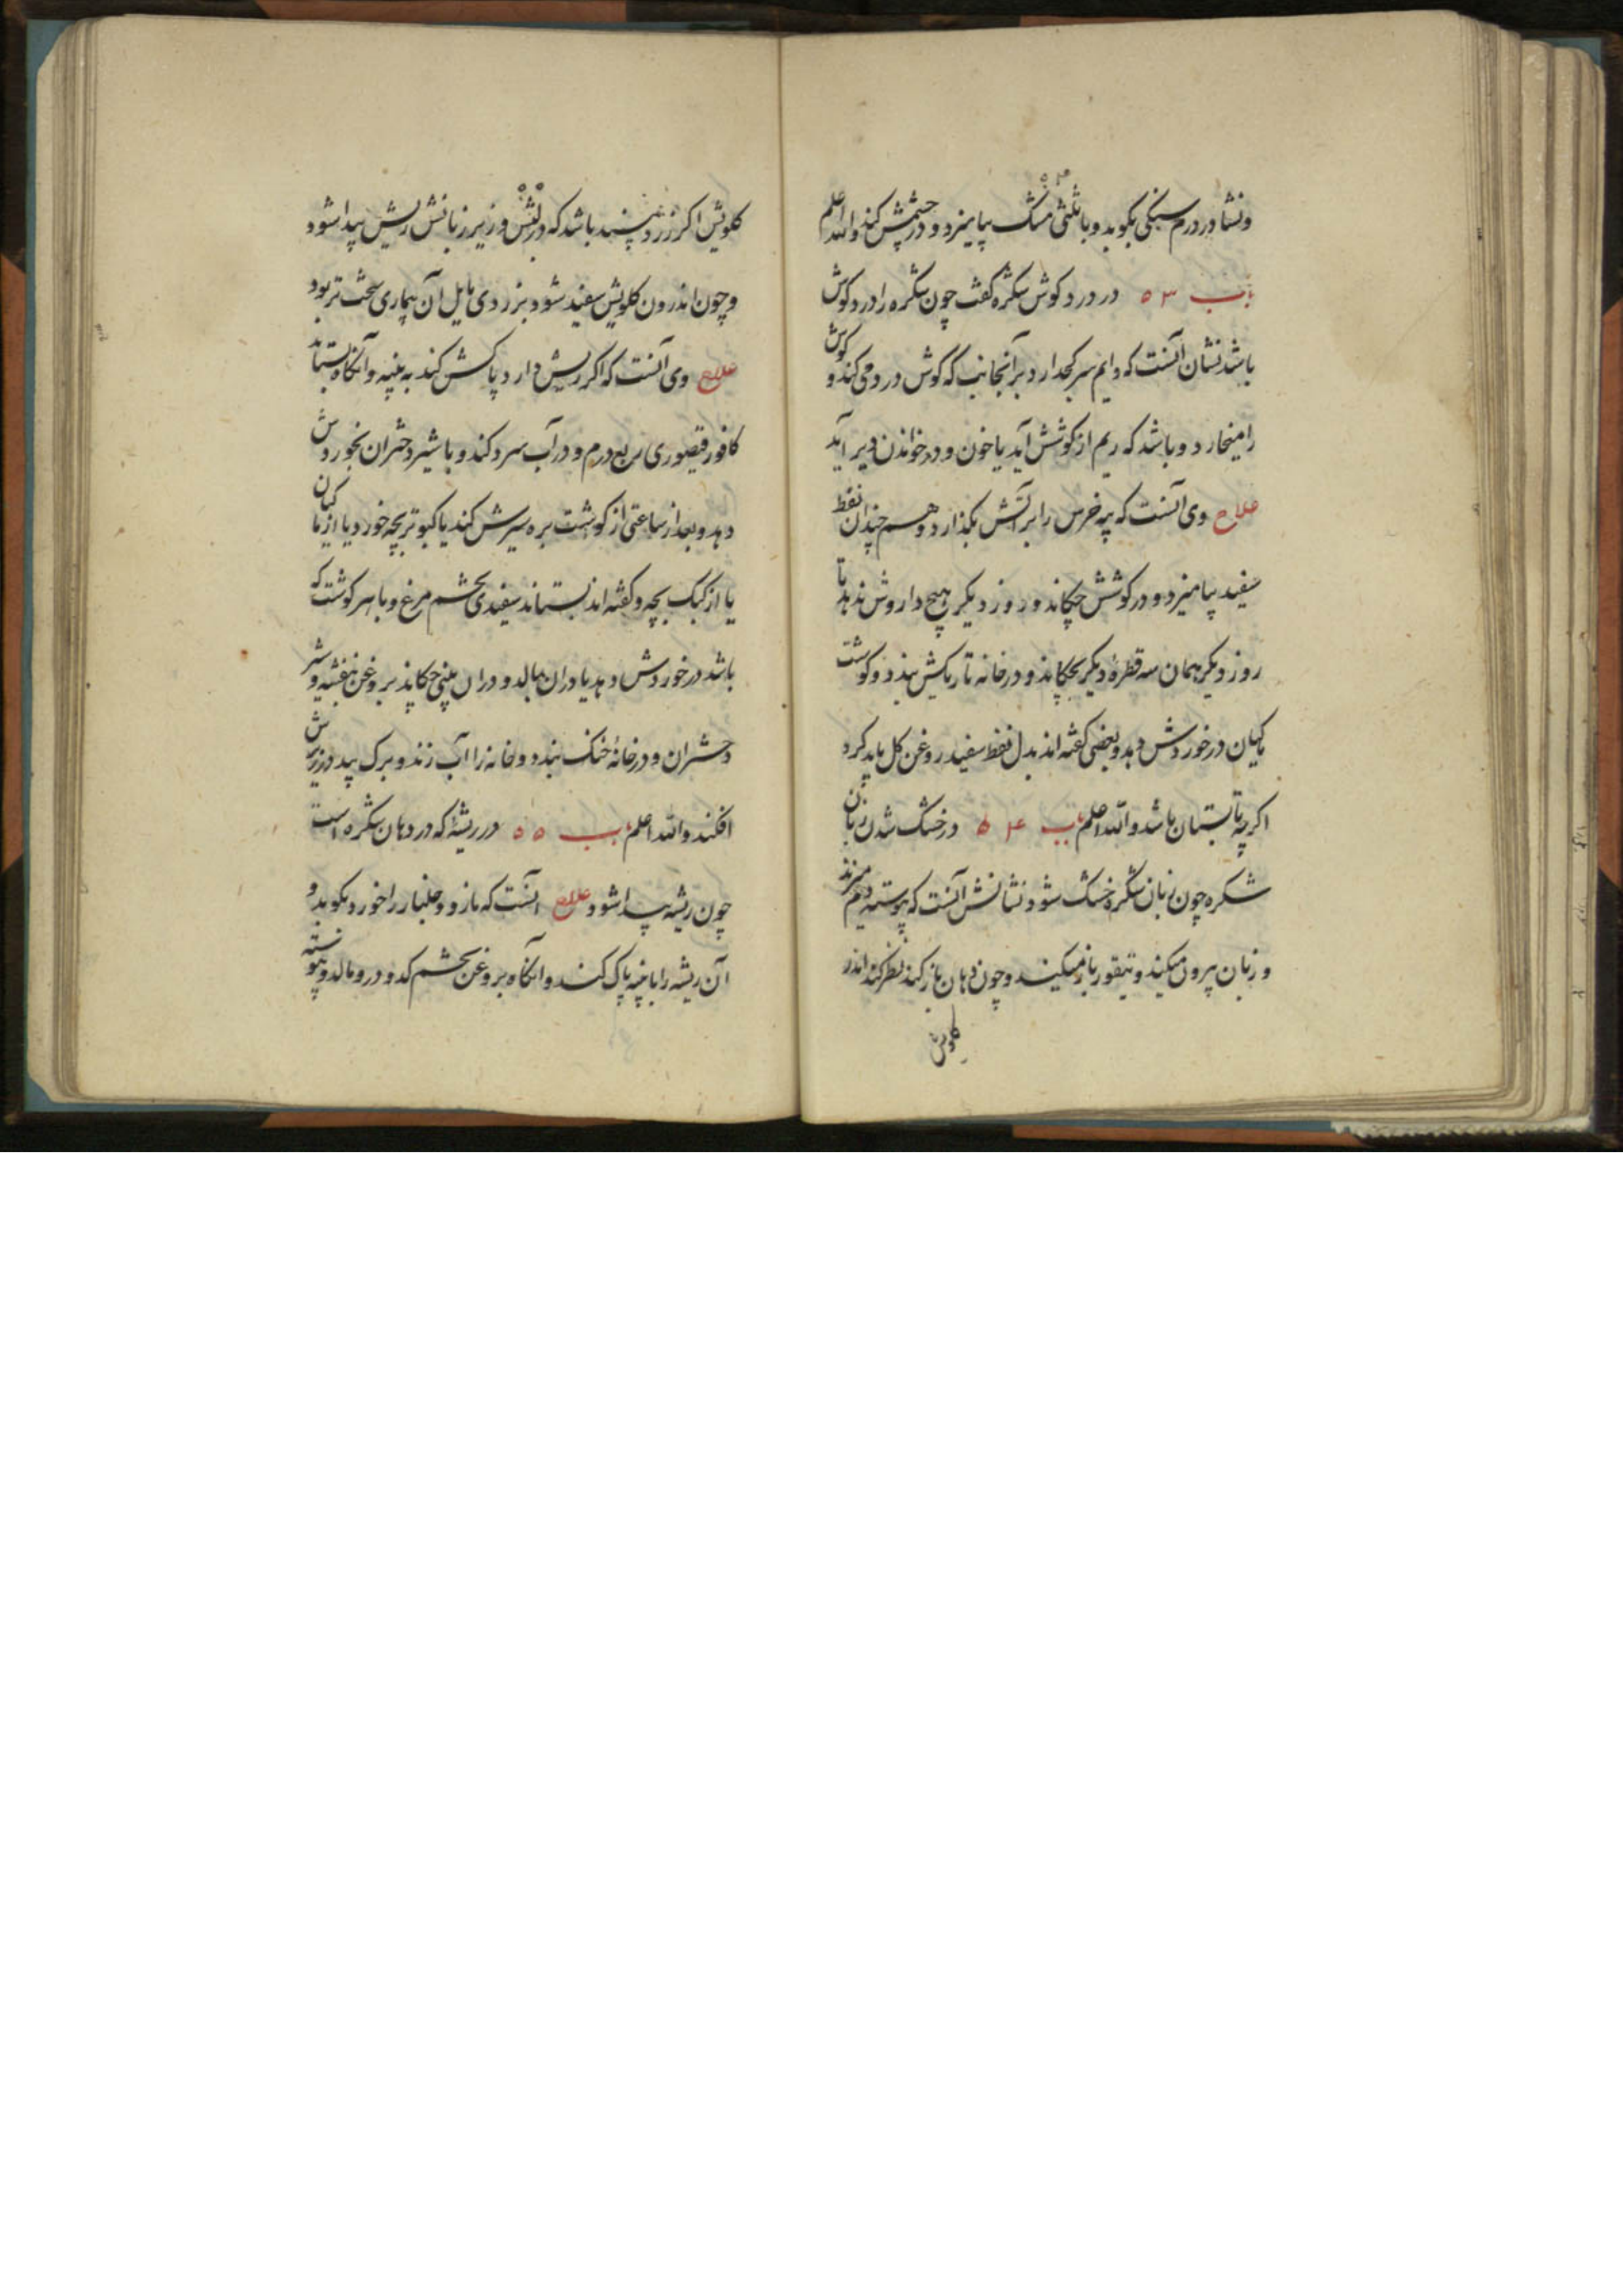 ونشادر درم سنکی بکوبد و با ثلثی مشک بیامیزد و در چشمش کند والله اعلم
باب ۵۳ در درد کوش شکره کفت چون شکره را درد کوش
باشد نشان آنست که دایم سر کج دارد بر آنجانب که کوش درد می کند و کوش
را میخارد و باشد که ریم از کوشش آید یا خون و در خواندن دیر آید
علاج وی آنست که پیه خرس را بر آتش بکذارد و هم چندان نفط
سفید بیامیزد و در کوشش چکاند و روز دیکر هیچ داروش ندهد تا
روز دیکر همان سه قطره دیکر بچکاند و در خانه تاریکش بندد و کوشت
ماکیان در خوردش دهد و بعضی کفته اند بدل نفط سفید روغن کل باید کرد
اکر چه تابستان باشد والله اعلم باب ۵۴ در خشک شدن زبان
شکره چون زبان شکره خشک شود نشانش آنست که پیوسته دم میزند
و زبان بیرون میکند و تیقور باز میکند و چون دهان باز کند نظر کند اندر
کلویش
کلویش اکر زرد بیند باشد که در لبش و زیر زبانش ریش پیدا شود
و چون اندرون کلویش سفید شود بزردی مایل آن بیماری سخت تر بود
علاج وی آنست که اکر ریش دارد پاکش کند به پنبه و آنکاه بستاند
کافور قیصوری ربع درم و در آب سرد کند و با شیر دختران بخوردش
دهد و بعد از ساعتی از کوشت بره سیرش کند یا کبوتر بچه خورد یا از ماکیان
یا از کبک بچه و کفته اند بستاند سفیدی تخم مرغ و با هر کوشت که
باشد در خوردش دهد یا دران بمالد و دران بینی چکاند بروغن بنفشه و شیر
دختران و در خانۀ خنک بندد و خانه را آب زند و برک بید در زیرش
افکند والله اعلم باب ۵۵ در ریشۀ که در دهان شکره است
چون ریشه پیدا شود علاج آنست که مازو و جلنار را خورد بکوبد و
آن ریشه را با پنبه پاک کند و آنکاه بروغن تخم کدو درو مالد و پیوسته